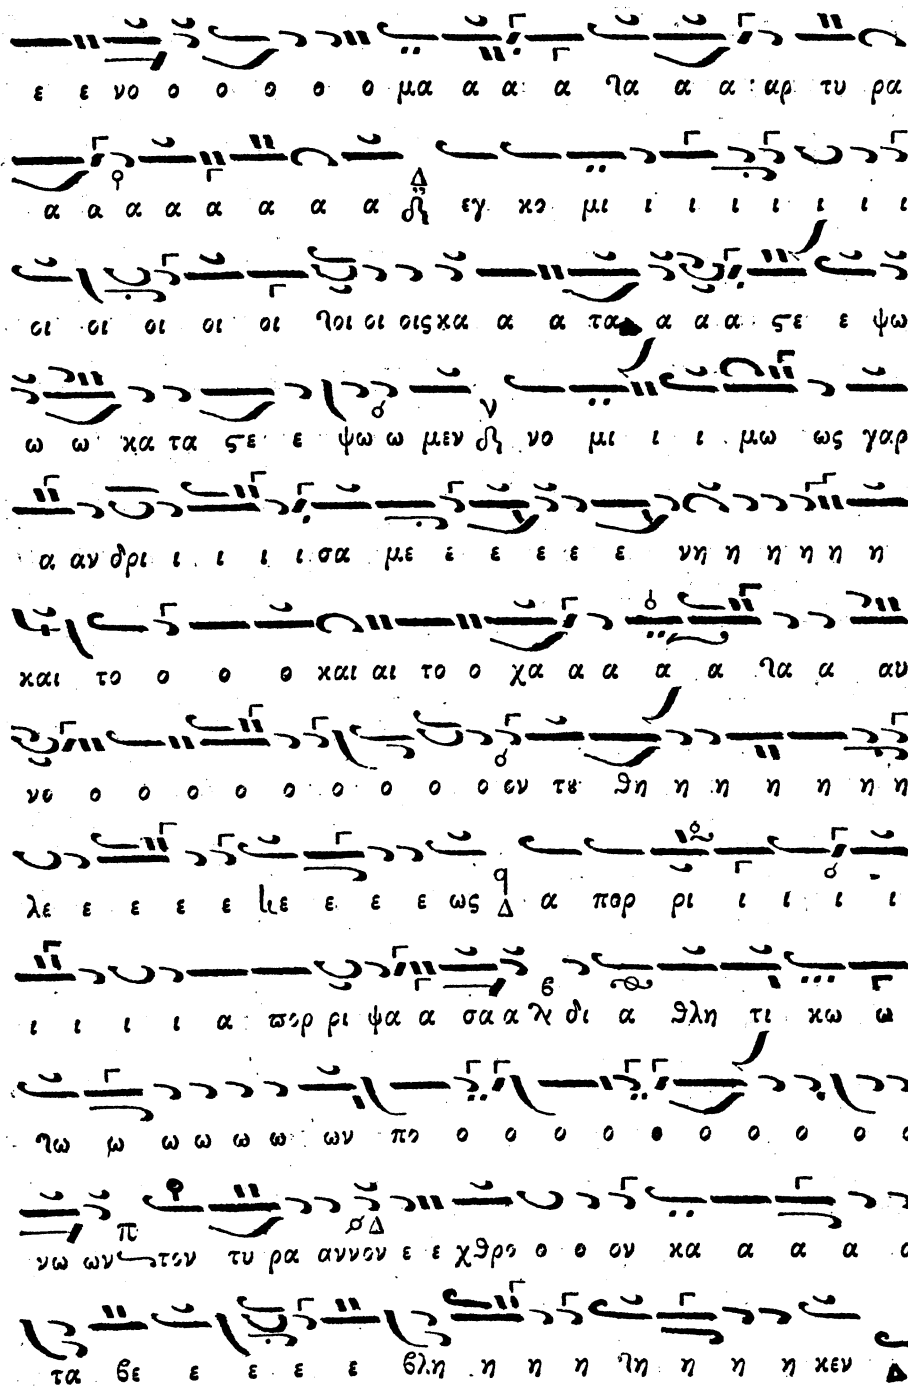 ε ε νο ο ο ο ο ο μα α α α λα α α αρ τυ ρα
α α α α α α α α εγ κο μι ι ι ι ι ι ι ι
οι οι οι οι οι λοι οι οις κα α α τα α α α ϛε ε ψω
ω ω κα τα ϛε ε ψω ω μεν νο μι ι ι μω ως γαρ
α αν δρι ι ι ι ι σα με ε ε ε ε ε νη η η η η η
και το ο ο ο και αι το ο χα α α α α λα α αυ
νο ο ο ο ο ο ο ο ο ο ον τȣ θη η η η η η η
λε ε ε ε ε κε ε ε ε ως α πορ ρι ι ι ι ι
ι ι ι ι α πορ ρι ψα α σα α δι α θλη τι κω ω
λω ω ω ω ω ω ων πο ο ο ο ο ο ο ο ο ο ο
νω ων τον τυ ρα αννον ε ε χθρο ο ο ον κα α α α α
τα βε ε ε ε ε βλη η η η λη η η η κεν